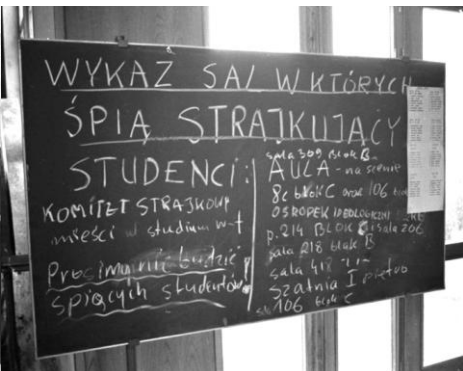 WYKAZ SAL W KTÓRYCH
ŚPIĄ STRAJKUJĄCY
STUDENCI:
KOMITET STRAJKOWY
mieści w studium w-f
Prosimy nie budzić
śpiących studentów!
sala 309 BLOK B
AULA - na scenie
8c blok C oraz 106
OŚRODEK IDEOLOGICZNY
p. 214 BLOK sala 206
sala 218 blok B
sala 418
Szatnia I piętro
106 blok C